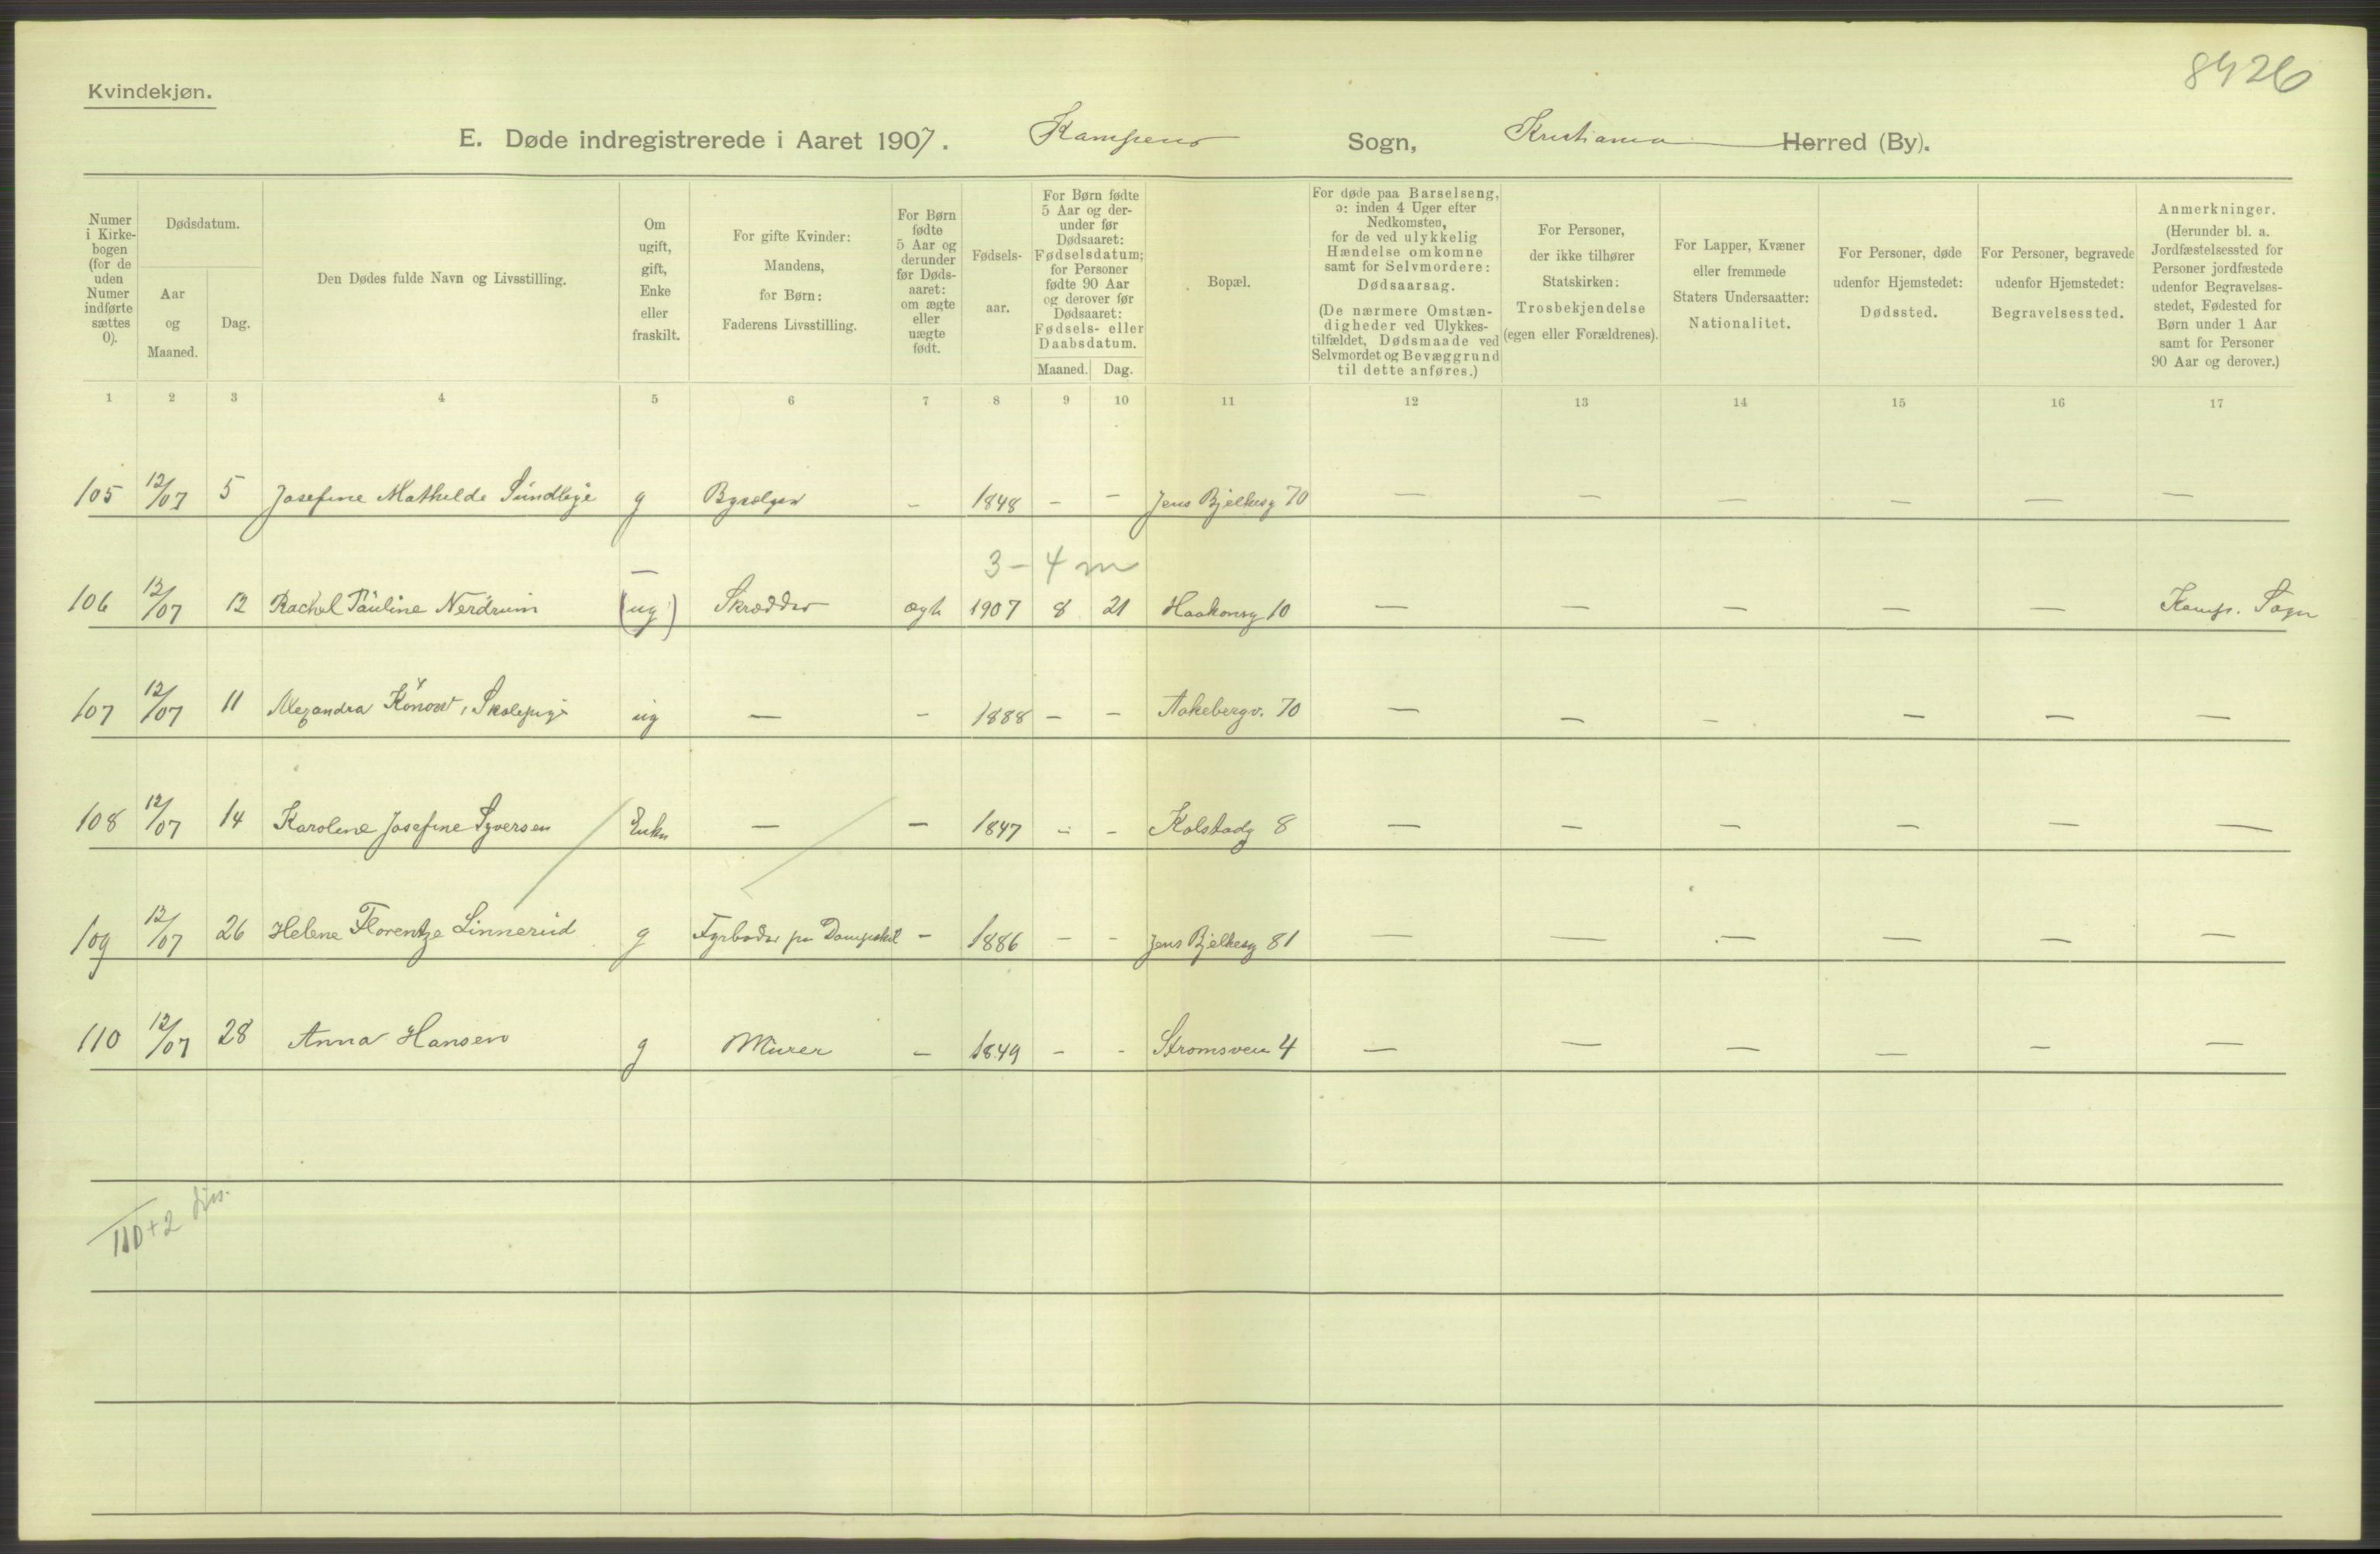 8426
Kvindekjøn.
E. Døde indregistrerede i Aaret 1907. Kampens Sogn, Kristiania Herred (By).
Numer i Kirkebogen (for de uden Numer indførte sættes 0).
Dødsdatum.
Aar og Maaned.
Dag.
Den Dødes fulde Navn og Livsstilling.
Om ugift, gift, Enke eller fraskilt.
For gifte Kvinder: Mandens, for Børn: Faderens Livsstilling.
For Børn fødte 5 Aar og derunder før Dødsaaret: om ægte eller uægte født.
Fødselsaar.
For Børn fødte 5 Aar og derunder før Dødsaaret: Fødselsdatum; for Personer fødte 90 Aar og derover før Dødsaaret: Fødsels- eller Daabsdatum.
Maaned. Dag.
Bopæl.
For døde paa Barselseng, ɔ: inden 4 Uger efter Nedkomsten, for de ved ulykkelig Hændelse omkomne samt for Selvmordere: Dødsaarsag.
(De nærmere Omstændigheder ved Ulykkestilfældet, Dødsmaade ved Selvmordet og Bevæggrund til dette anføres.)
For Personer, der ikke tilhører Statskirken: Trosbekjendelse (egen eller Forældrenes).
For Lapper, Kvæner eller fremmede Staters Undersaatter: Nationalitet.
For Personer, døde udenfor Hjemstedet: Dødssted.
For Personer, begravede udenfor Hjemstedet: Begravelsessted.
Anmerkninger. (Herunder bl. a. Jordfæstelsessted for Personer jordfæstede udenfor Begravelsesstedet, Fødested for Børn under 1 Aar samt for Personer 90 Aar og derover.)
1 2 3 4 5 6 7 8 9 10 11 12 13 14 15 16 17
105 12/07 5 Josefine Mathilde g – 1848 – – Jens Bjelkesg 70 – – – – – –
3 – 4 m
106 12/07 12 Rachel Pauline Nerdrum (ug) Skrædder ægte 1907 8 21 Haakonsg 10 – – – – – Kamp. Sogn
107 12/07 11 Alexandra Konow, Skolepige ug – – 1888 – – Aakebergv. 70 – – – – – –
108 12/07 14 Karoline Josefine Syversen Enke – – 1847 – – Kolstadg 8 – – – – – –
109 12/07 26 Helene Florentze Linnerud g Fyrbøder pa Dampskib – 1886 – – Jens Bjelkesg 81 – – – – – –
110 12/07 28 Anna Hansen g Murer – 1849 – – Strømsveien 4 – – – – – –
110 + 2